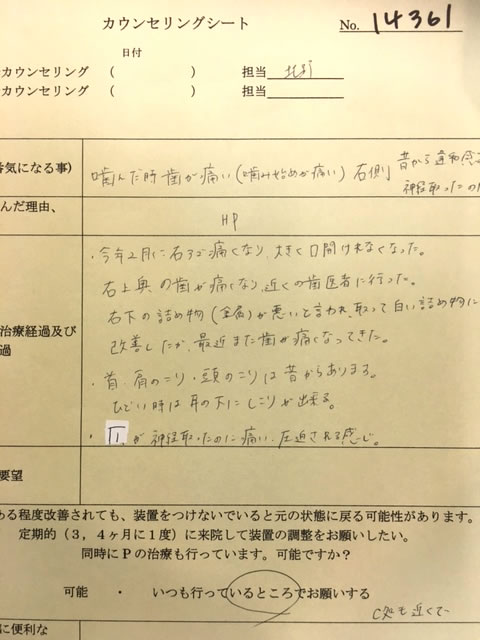 カウンセリングシート
No. 14361
日付
カウンセリング ( ) 担当
カウンセリング ( ) 担当
番気になる事)
噛んだ時歯が痛い(噛み始めが痛い) 右側
昔から違和感
神経取ったの
んだ理由、
HP
・今年2月に右アゴ痛くなり、大きく口開けれなくなった。
右上奥の歯が痛くなり、近くの歯医者に行った。
治療経過及び
過
右下の詰め物(金属)が悪いて言われ、取って白い詰め物に
改善したが、最近また歯が痛くなってきた。
・首・肩のこり・頭のこりは昔からあります。
ひどい時は耳の下にしこりが出来る。
・ が神経取ったのに痛い、圧迫される感じ。
要望
ある程度改善されても、装置をつけないでいると元の状態に戻る可能性があります。
定期的(3,4ヶ月に1度)に来院して装置の調整をお願いしたい。
同時にPの治療も行っています。可能ですか?
可能 ・ いつも行っているところでお願いする
C処も近くで
に便利な